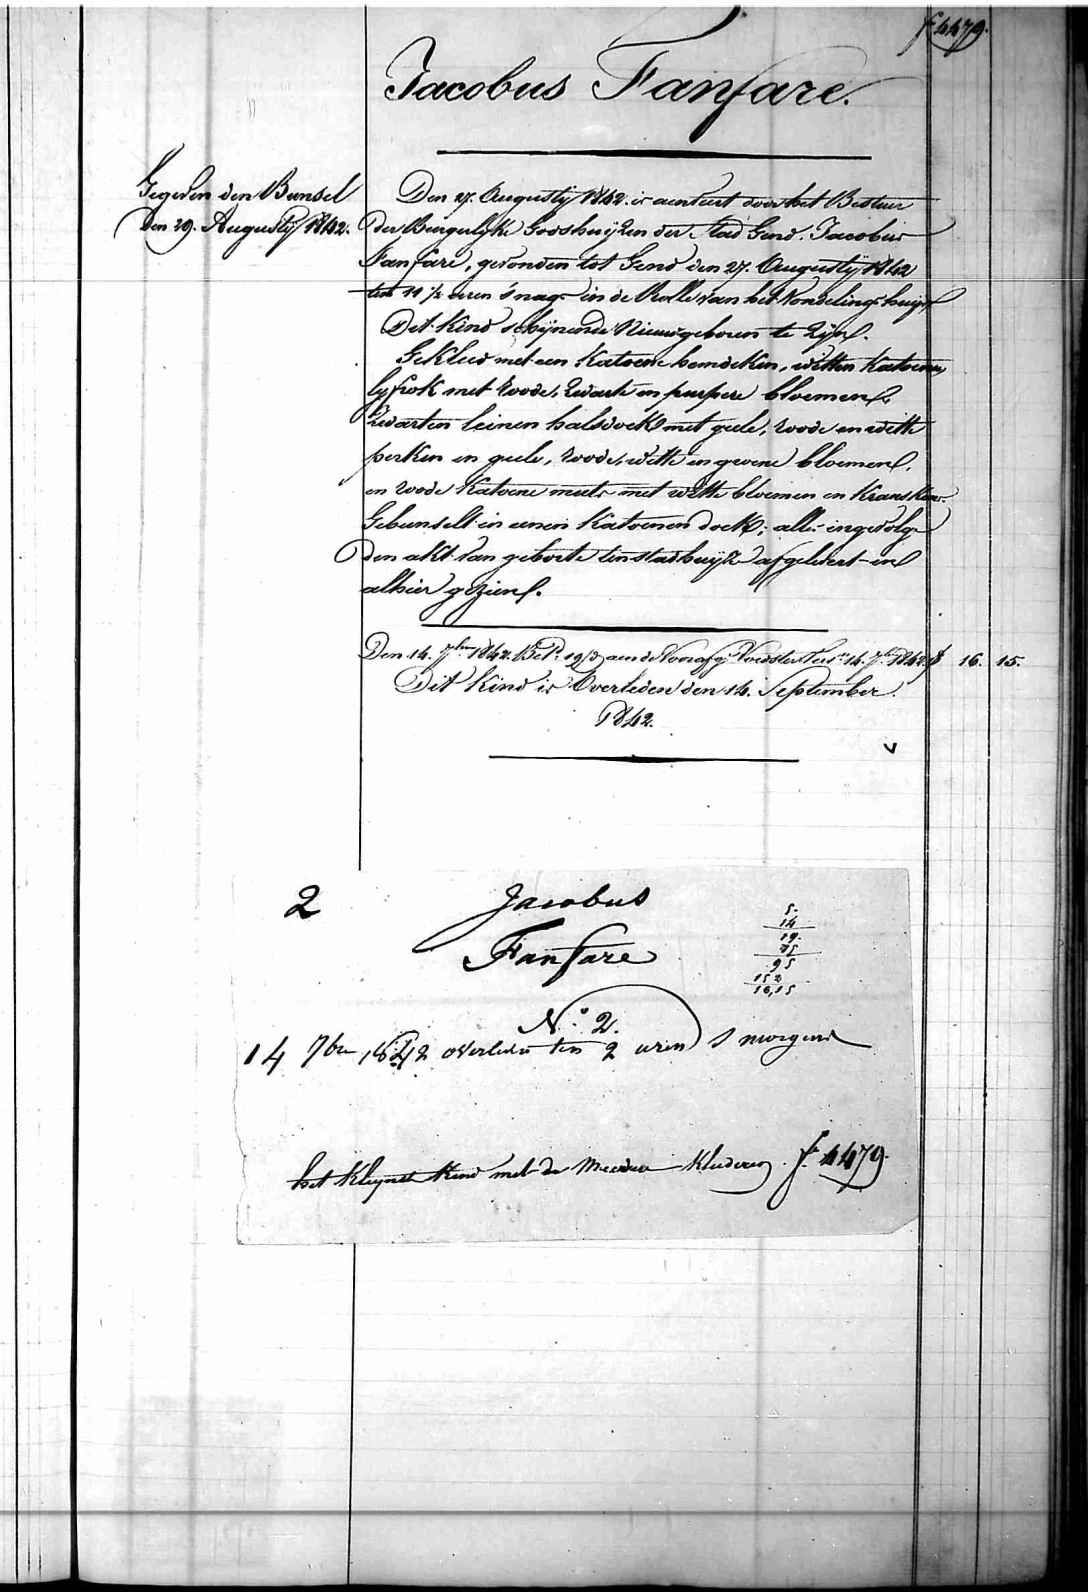 f° 4479.
Jacobus Fanfare.
Gegeven den Bunsel
Den 29. Augusty 1842.
Den 27. Augusty 1842. is aenveert door het Bestuer
der Burgerlyke Godshuijzen der Stad Gend. Jacobus
Fanfare, gevonden tot Gend den 27. Augustij 1842
ten 11 1/2 uren 's nags in de Rolle van het Vondelingshuijs
Dit Kind schijnende Nieuwgeboren te Zijn.
Gekleed met een Katoene hemdeken, witten Katoenen
lyfrok met roode, Zwarte en purpere bloemen,
Zwarten leinen halsdoek met geele, roode en witte
perken en geele, roode, witte en groene bloemen,
en roode Katoene muts met witte bloemen en Kranskens.
Gebunselt in eenen Katoenen doek; alles ingevolge
den akt van geboorte ten stadhuijze afgelevert en
alhier gezien.
Den 14. 7ber 1842. Bet. 19/d aen de Voorafg. Voedster 14. 7ber 1842. f 16. 15.
Dit Kind is Overleden den 14. September
1842.
2
Jacobus
Fanfare
5.
14
19.
75
95
152
16,15
N° 2.
14 7bre 1842 overleden ten 2 uren s morgens
het kleynste Kind met de Meerdere kleederen f° 4479.